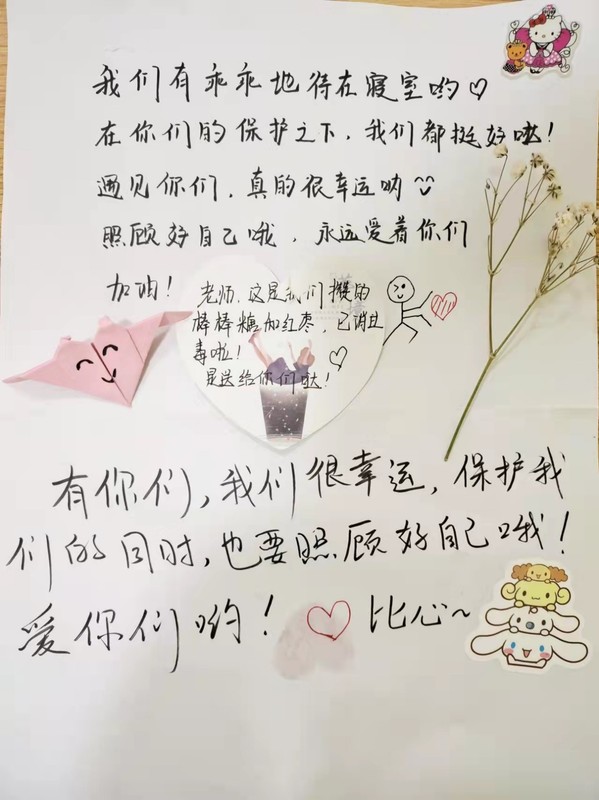 我们有乖乖地待在寝室哟♡
在你们的保护之下，我们都挺好哒！
遇见你们，真的很幸运呐
照顾好自己哦，永远爱着你们
加油！
老师，这是我们攒的
棒棒糖加红枣，已消过
毒啦！
是送给你们哒！
有你们，我们很幸运，保护我
们的同时，也要照顾好自己哦！
爱你们哟！♡比心~